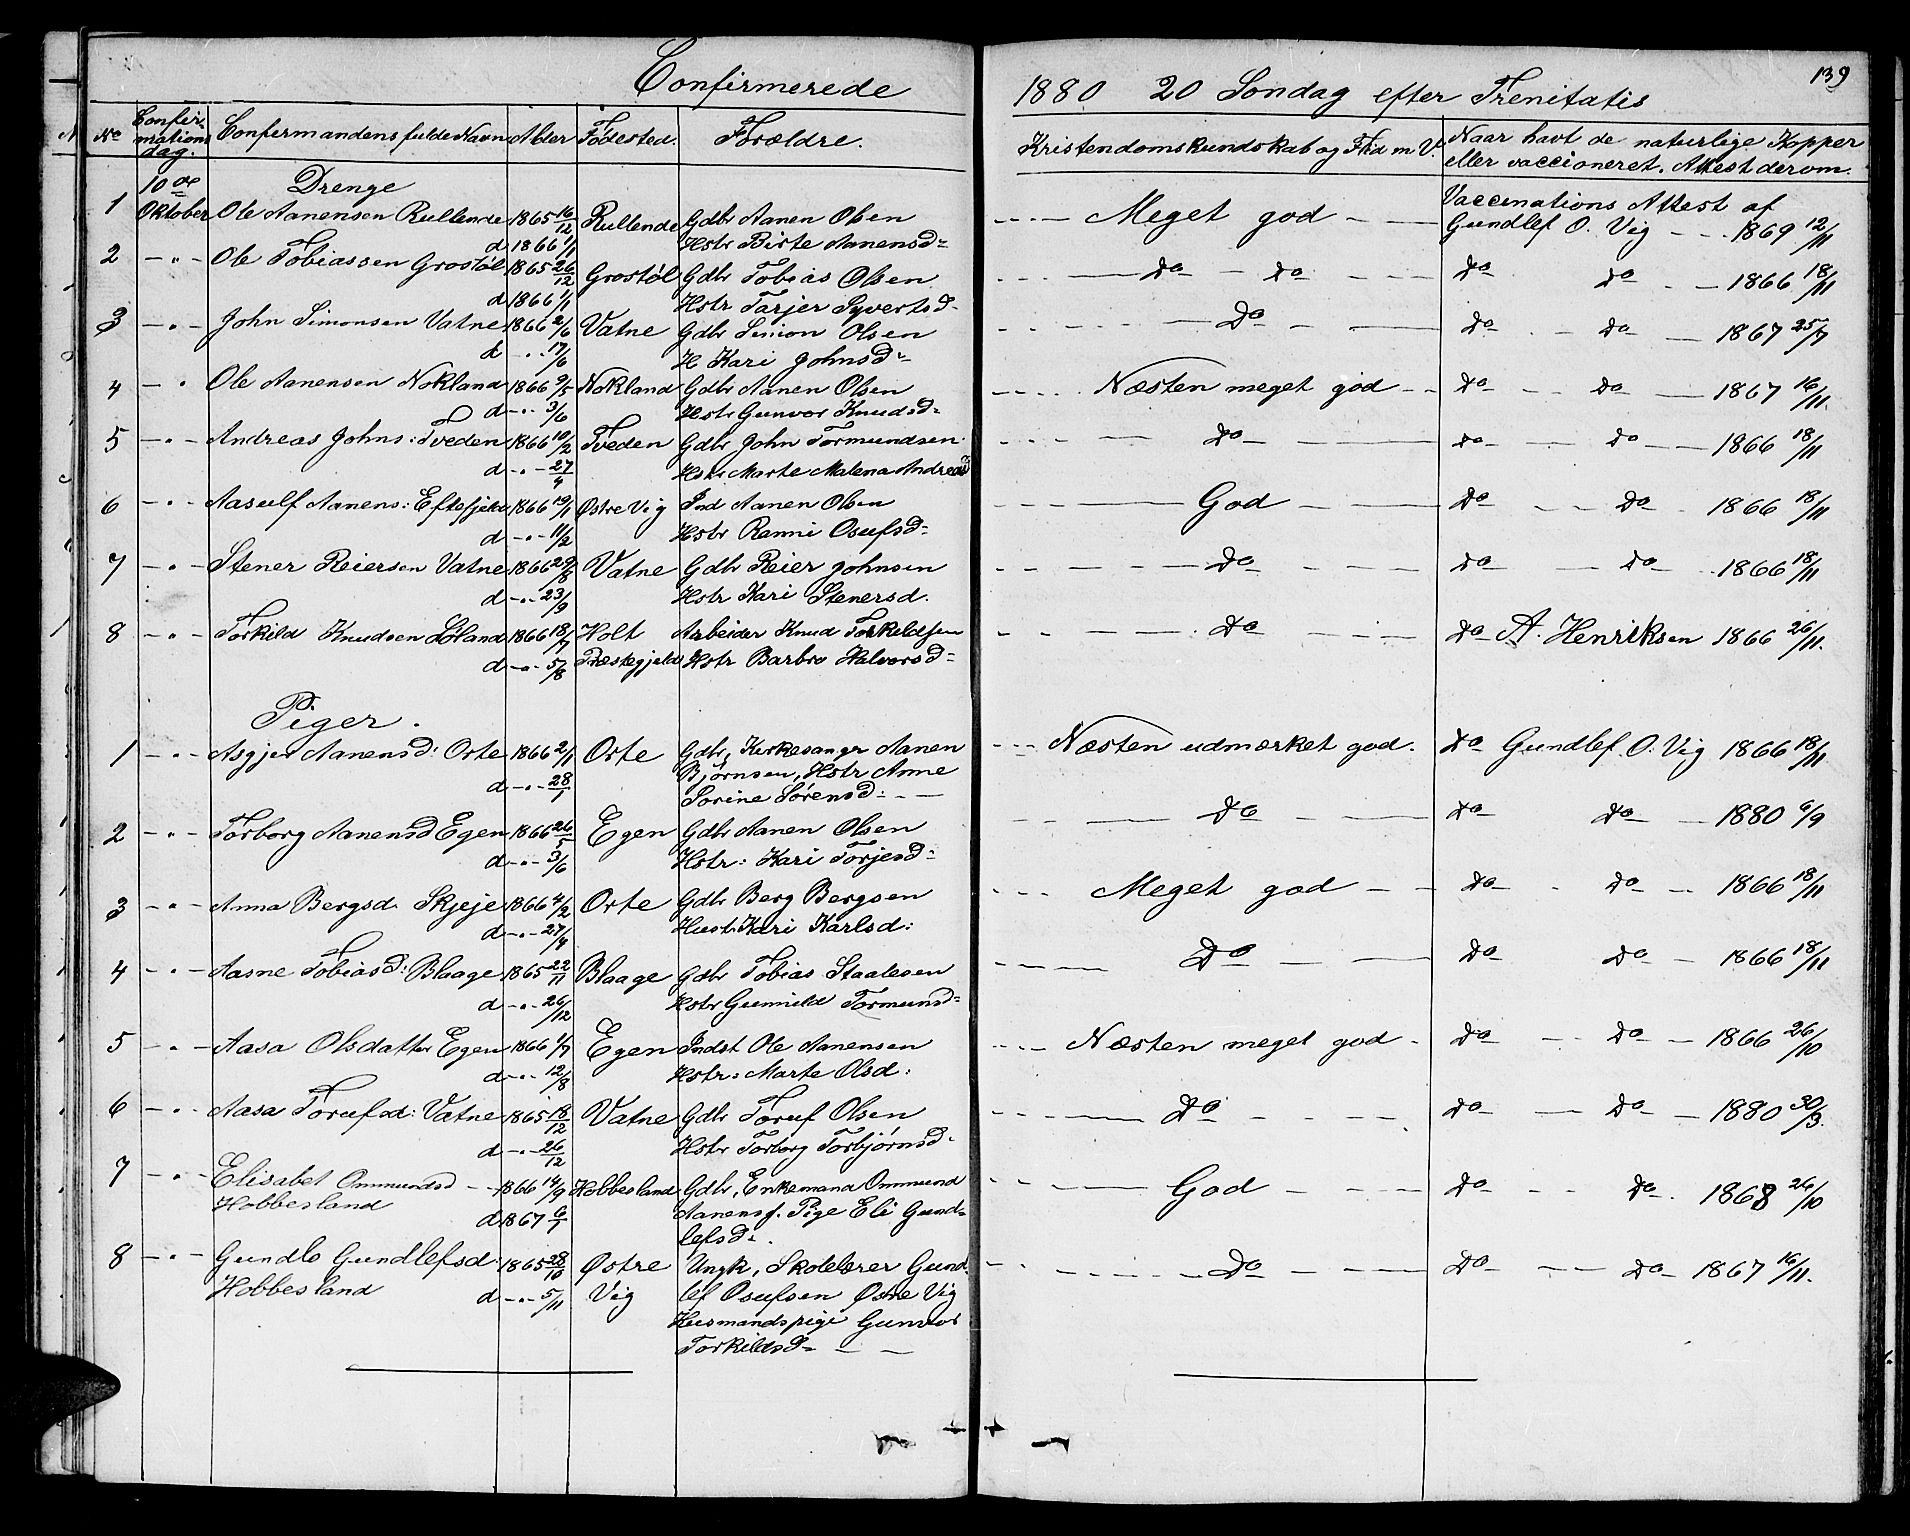 Confirmerede
1880 20 Søndag efter Trenitatis
139
No Confirmations dag. Confermandens fulde Navn Alder Fødested. Forældre. Kristendomskundskab og Flid m. V. Naar havt de naturlige Kopper
eller vaccioneret. Attest derom.
10de Drenge
1 Oktober Ole Aanensen Rullende 1865 16/12 Rullende Gdbr Aanen Olsen - - - - Meget god - - Vaccinations Attest af
d 1866 1/1 Hstr Birte Aanensd= Gundlef O. Vig - - - 1869 12/11
2 - " - Ole Tobiassen Grostøl 1865 26/12 Grostøl Gdbr Tobias Olsen - - - Do - Do - - - Do Do - - 1866 18/11
d 1866 1/1 Hstr Tarjer Syvertsd-
3 - " - John Simonsen Vatne 1866 2/6 Vatne Gdbr Simon Olsen - - - - Do - - Do - Do - 1867 25/7
d - " - 17/6 H Kari Johnsd=
4 - " Ole Aanensen Nokland 1866 9/5 Nokland Gdbr Aanen Olsen - - - - Næsten meget god - - Do - - Do - - 1867 16/11.
d - " - 3/6 Hstr Gunvor Knudsd=
5 - " - Andreas Johns: Tveden 1866 10/2 Tveden Gdbr John Tormundsen - - - Do - - Do - Do - - 1866 18/11
d - " - 27/4 Hstr Marte Malena Andreasd
6 - " - Aasulf Aanens: Eftefjeld 1866 19/1 Østre Vig Ind Aanen Olsen - - - God - - - Do - - Do - 1866 18/11
d - " - 11/2 Hstr Ranni Osufsd=
7 - " - Stener Reiersen Vatne 1866 29/8 Vatne Gdbr Reier Johnsen - - - - Do - - - Do - Do - 1866 18/11
d - " - 23/9 Hstr Kari Stenersd.
8 - " - Torkild Knudsen Løland 1866 18/7 Holt Arbeider Knud Torkildsen - - - - Do - - - Do A. Henriksen 1866 26/11.
d - " - 5/8 Præstegjeld Hstr Barbro Halvorsd=
Piger.
1 - " - Asgjer Aanensd: Orte 1866 2/1 Orte Gdbr, Kirkesanger Aanen - - - Næsten udmærket god. Do Gundlef O. Vig 1866 18/11
d - " - 28/1 Bjørnsen, Hstr Anne
Sorine Sørensd: - -
2 - " - Torborg Aanensd Egen 1866 26/5 Egen Gdbr Aanen Olsen - - - Do - - - Do Do - 1880 6/9
d - " - 3/6 Hstr: Kari Torjesd=
3 - " - Anna Bergsd. Skjeje 1866 4/2 Orte Gdbr Berg Bergsen - - - Meget god - - Do - Do - - 1866 18/11
d - " - 27/4 Hustr Kari Karlsd:
4 - " - Aasne Tobiasd: Blaage 1865 22/11 Blaage Gdbr Tobias Staalesen - - - Do - - - Do Do - 1866 18/11
d - " - 26/12 Hstr Gunnild Tormunsd=
5 - " - Aasa Olsdatter Egen 1866 1/7 Egen Indst Ole Aanensen - - - Næsten meget god - Do - - Do - 1866 26/10
d - " - 12/8 Hstr: Marte Olsd:
6 - " - Aasa Torufsd: Vatne 1865 18/12 Vatne Gdbr Toruf Olsen - - - Do - - - - Do - Do - 1880 30/3.
d - " - 26/12 Hstr Torborg Torbjørnsd-
7 - " - Elisabet Ommundsd - - 1866 14/9 Hobbesland Gdbr, Enkemand Ommund - - - God - - - Do - - Do. 1868 26/10
Hobbesland d 1867 6/1 Aanensf. Pige Eli Gund=
lefsd=.
8 - " - Gundlo Gundlefsd 1865 28/10 Østre Ungk, Skolelærer Gund - - - - Do - - - Do - - Do - 1867 16/11.
Hobbesland d - " - 5/11 Vig lef Osufsen Østre Vig
Husmandspige Gunvor
Torkildsd= - -